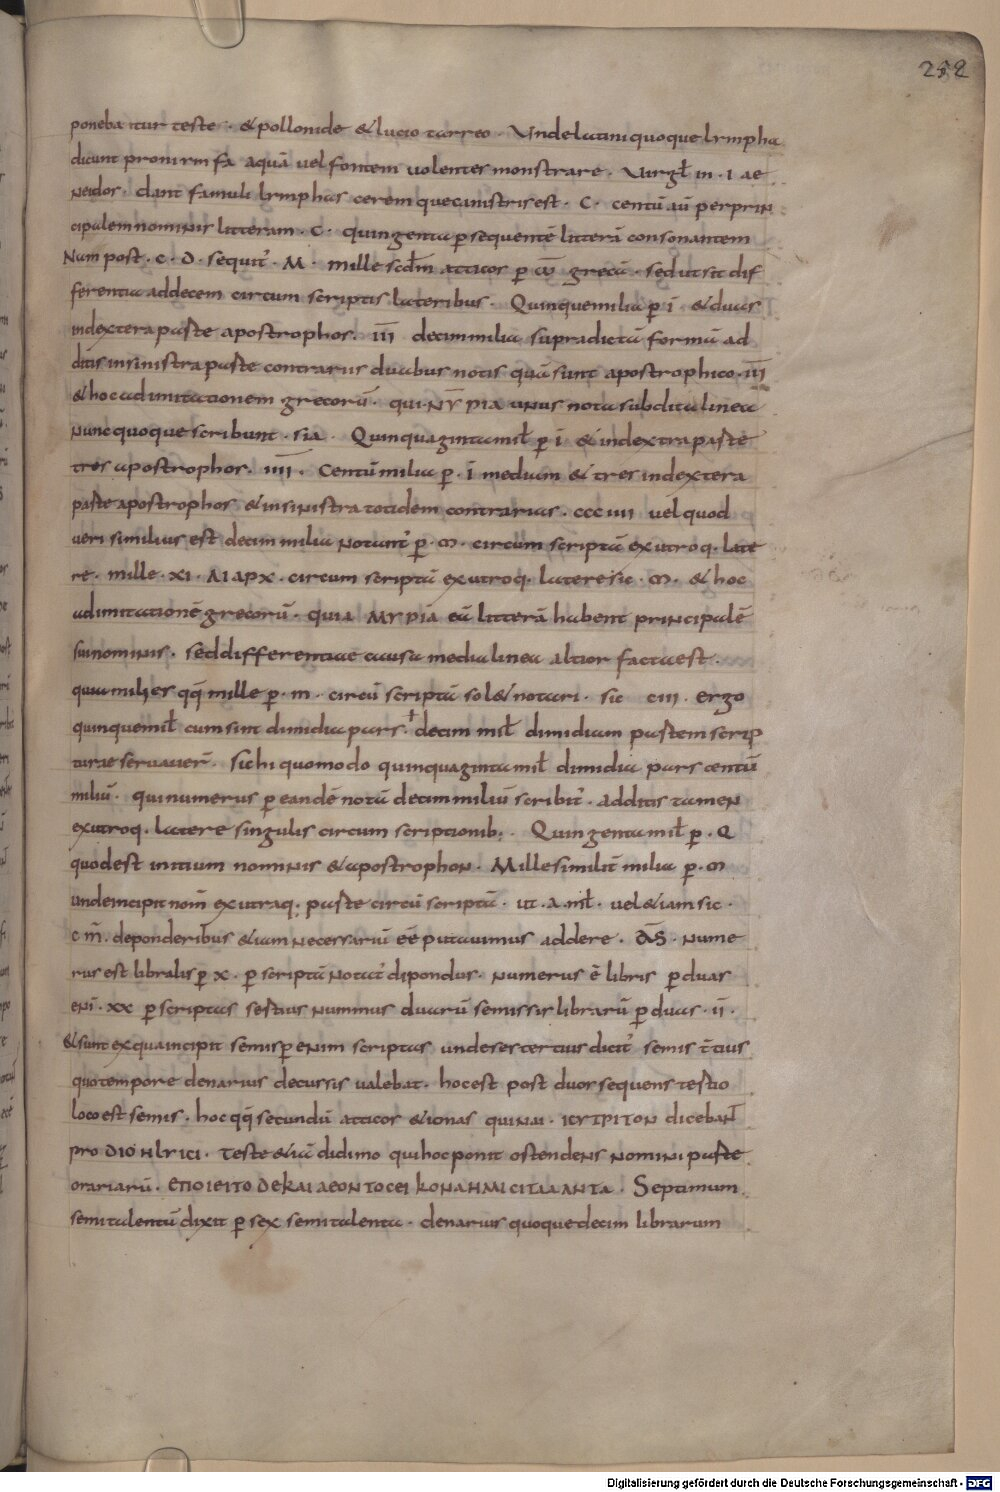 252
poneba itur teste · & pollonide & lucio tarreo · Unde latini quoque lympha
dicunt pro nimfa aquā vel fontem volentes monstrare · Virgł in · I · ae
neidos · dant famuli lymphas cerem que canistris est · C · centū aū per prin
cipalem nominis litteram · C · quingenta p sequentē litterā consonantem
Nam post · c · D · sequit᷑ · M · mille scdm atticos p ω grecū · sed ut sit dif
ferentia ad decem circum scriptis lateribus · Quinque milia p i · & duas
in dextera parte apostrophos · iii decim milia supradictā formā ad
ditis in sinistra parte contrariis duabus notis quā sunt apostropho · iii
& hoc ad imitationem grecorū · qui · NY PIA unus nota subdita linea
nunc quoque scribunt · sia · Quinquaginta mił p i & in dextra parte
tres apostrophos · iiii · Centū milia p · i mediam & tres in dextera
parte apostrophos & in sinistra totidem contrarias · ccc iiii vel quod
veri similius est decim milia notant᷑ p · m · circum scriptā ex utroq · late
re · mille · XI · ΛI APX · circum scriptā ex utroq · latere sic · m · & hoc
ad imitationē grecorū · quia MYPIA eā litterā habent principalē
sui nominis · sed differentiae causa media linea altior facta est ·
quia milies qq mille p · m · circū scriptā sol& notari · sic ciii · ergo
quinque mił cum sint dimidia pars · decim mił dimidiam partem scrip
turae servaver̄ · sic hi quomodo quinquaginta mił dimidia pars centū
miliū · qui numerus p eandē notā decim miliū scribit᷑ · additis tamen
ex utroq · latere singulis circum scriptionib; · Quingenta mił p · Q
quod est initium nominis & apostrophon · Mille similit̄ milia p · m
unde incipit nom̄ ex utraq · parte circū scriptā · ut · a · mł · vel & iam sic ·
c m̄ · de ponderibus & iam necessariū eē putavimus addere · AS · nume
rus est libralis p x · p scriptā notat᷑ dipondus · numerus ē libris p duas
eni · xx p scriptas sestius nummus duarū semissis librarū p duas · ii ·
& sunt ex qua incipit semis p enim scriptas unde sestertius dicit᷑ semis t̄tius
quo tempore denarius decussis valebat · hoc est post duos sequens testio
loco est semis · hoc qq secundū atticos & ionas quinai · ICYTPITON dicebant̄
pro DIO HLYICI · Teste & iā didimo qui hoc ponit ostendens nomini parte
orariarū · ETIOIEITO DEKAI AEON TOCEI KONAHMICITAAANTA · Septimum
semitalentū dixit p sex semitalenta · denarius quoque decim librarum
Digitalisierung gefördert durch die Deutsche Forschungsgemeinschaft - DFG